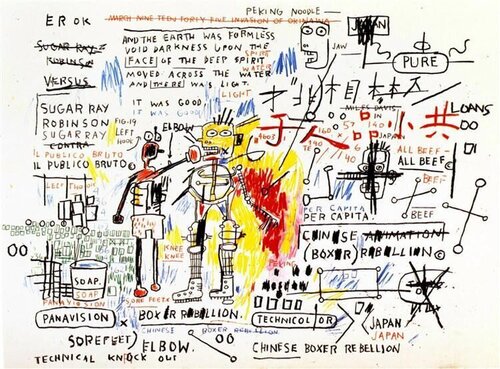 PEKING NOODLE—
EROK
MARCH NINE TEEN FORTY FIVE INVASION OF OKINAWA
JAPAN
AND THE EARTH WAS FORMLESS
VOID DARKNESS UPON THE
[FACE] OF THE DEEP SPIRIT
SPIRIT
MOVED ACROSS THE WATER
WATER
AND [THERE] WAS LIGHT.
LIGHT
IT WAS GOOD
IT WAS GOOD
JAW
PURE
SUGAR RAY
ROBINSON
VERSUS
SUGAR RAY
ROBINSON
SUGAR RAY
CONTRA
IL PUBLICO BRUTO
IL PUBLICO BRUTO
FIG.19
LEFT
HOOK
ELBOW
MILES DAVIS
LOANS
于人品小共
JAPAN
ALL BEEF
ALL BEEF©
BEEF—
BEEF
PER CAPITA
PER CAPITA.
CHINESE ANIMATION
(BOXER) REBELLION©
KNEE
KNEE
PEKING
SOAP.
SOAP
PANAVISION
PANAVISION
SORE FEET
BOXER REBELLION.
CHINESE BOXER REBELLION
TECHNICOLOR
JAPAN
JAPAN
SORE FEET
ELBOW.
TECHNICAL KNOCK OUT
CHINESE BOXER REBELLION